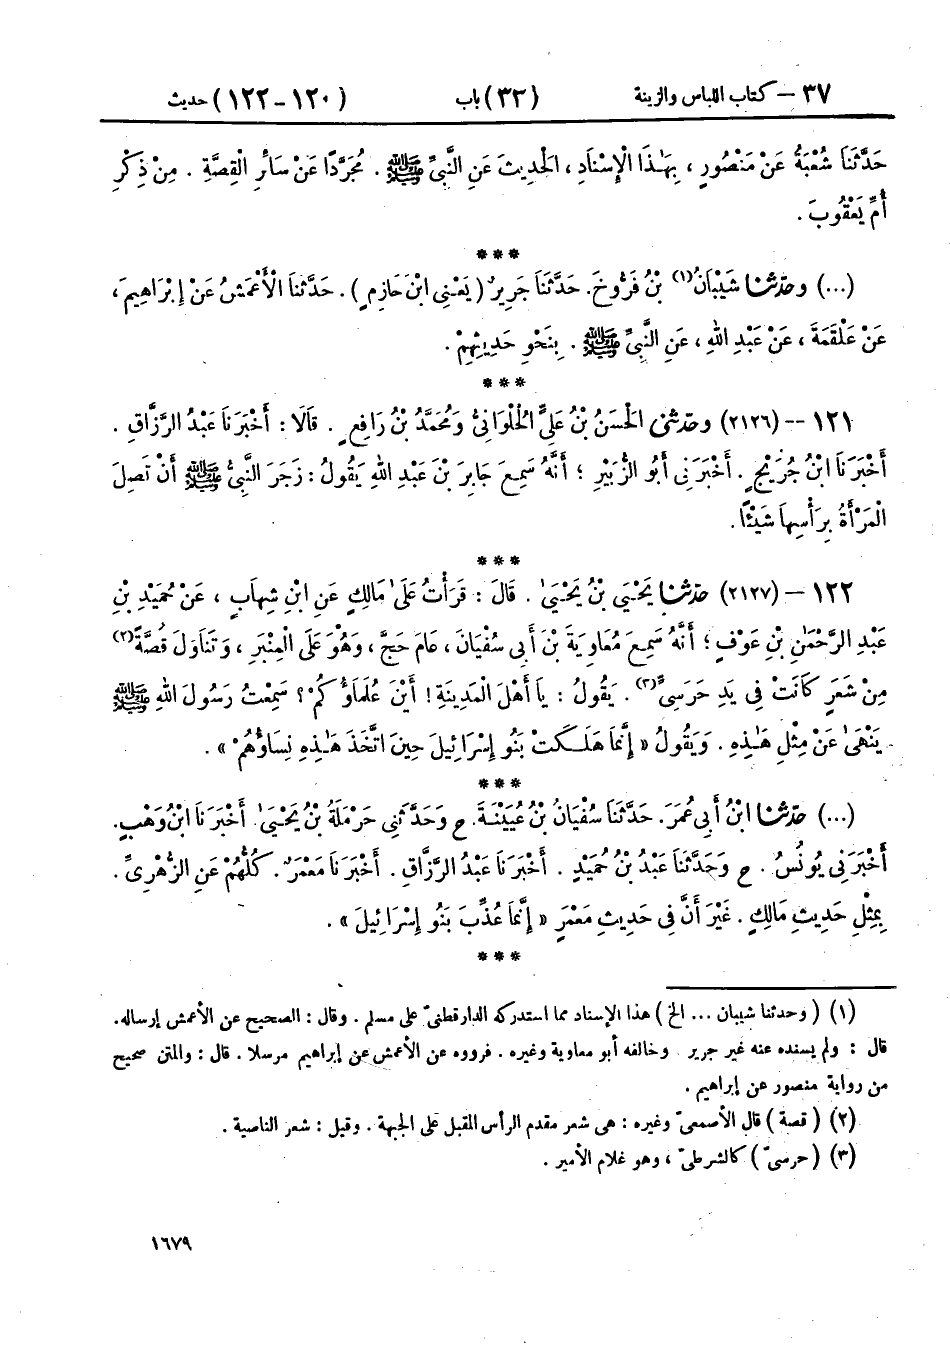 ٣٧ – كتاب اللباس والزينة (٣٣) باب (١٢٠-١٢٢) حديث
حَدَّثَنَا شُعْبَةُ عَنْ مَنْصُورٍ ، بِهَٰذَا الْإِسْنَادِ ، الْحَدِيثَ عَنِ النَّبِيِّ ﷺ . مُجَرَّدًا عَنْ سَائِرِ الْقِصَّةِ . مِنْ ذِكْرِ
أُمِّ يَعْقُوبَ .
***
(...) وحَدَّثَنَا شَيْبَانُ(١) بْنُ فَرُّوخَ. حَدَّثَنَا جَرِيرٌ ( يَعْنِي ابْنَ حَازِمٍ ) . حَدَّثَنَا الْأَعْمَشُ عَنْ إِبْرَاهِيمَ ،
عَنْ عَلْقَمَةَ ، عَنْ عَبْدِ اللهِ ، عَنِ النَّبِيِّ ﷺ . بِنَحْوِ حَدِيثِهِمْ .
***
١٢١ -- (٢١٢٦) وحَدَّثَنِي الْحَسَنُ بْنُ عَلِيٍّ الْحُلْوَانِيُّ وَمُحَمَّدُ بْنُ رَافِعٍ . قَالَا : أَخْبَرَنَا عَبْدُ الرَّزَّاقِ .
أَخْبَرَنَا ابْنُ جُرَيْجٍ . أَخْبَرَنِي أَبُو الزُّبَيْرِ ؛ أَنَّهُ سَمِعَ جَابِرَ بْنَ عَبْدِ اللهِ يَقُولُ : زَجَرَ النَّبِيُّ ﷺ أَنْ تَصِلَ
الْمَرْأَةُ بِرَأْسِهَا شَيْئًا .
***
١٢٢ – (٢١٢٧) حَدَّثَنَا يَحْيَى بْنُ يَحْيَىٰ . قَالَ : قَرَأْتُ عَلَىٰ مَالِكٍ عَنِ ابْنِ شِهَابٍ ، عَنْ حُمَيْدِ بْنِ
عَبْدِ الرَّحْمَٰنِ بْنِ عَوْفٍ ؛ أَنَّهُ سَمِعَ مُعَاوِيَةَ بْنَ أَبِي سُفْيَانَ ، عَامَ حَجَّ ، وَهُوَ عَلَى الْمِنْبَرِ ، وَتَنَاوَلَ قُصَّةً(٢)
مِنْ شَعَرٍ كَانَتْ فِي يَدِ حَرَسِيٍّ(٣) . يَقُولُ : يَا أَهْلَ الْمَدِينَةِ ! أَيْنَ عُلَمَاؤُكُمْ ؟ سَمِعْتُ رَسُولَ اللهِ ﷺ
يَنْهَىٰ عَنْ مِثْلِ هَٰذِهِ . وَيَقُولُ « إِنَّمَا هَلَكَتْ بَنُو إِسْرَائِيلَ حِينَ اتَّخَذَ هَٰذِهِ نِسَاؤُهُمْ » .
***
(...) حَدَّثَنَا ابْنُ أَبِي عُمَرَ. حَدَّثَنَا سُفْيَانُ بْنُ عُيَيْنَةَ. ح وَحَدَّثَنِي حَرْمَلَةُ بْنُ يَحْيَىٰ . أَخْبَرَنَا ابْنُ وَهْبٍ.
أَخْبَرَنِي يُونُسُ . ح وَحَدَّثَنَا عَبْدُ بْنُ حُمَيْدٍ . أَخْبَرَنَا عَبْدُ الرَّزَّاقِ . أَخْبَرَنَا مَعْمَرٌ . كُلُّهُمْ عَنِ الزُّهْرِيِّ .
بِمِثْلِ حَدِيثِ مَالِكٍ . غَيْرَ أَنَّ فِي حَدِيثِ مَعْمَرٍ « إِنَّمَا عُذِّبَ بَنُو إِسْرَائِيلَ » .
***
(١) ( وحدثنا شيبان ... الخ ) هذا الإسناد مما استدركه الدارقطنيّ على مسلم . وقال : الصحيح عن الأعمش إرساله .
قال : ولم يسنده عنه غير جرير وخالفه أبو معاوية وغيره . فرووه عن الأعمش عن إبراهيم مرسلا . قال : والمتن صحيح
من رواية منصور عن إبراهيم .
(٢) ( قصة ) قال الأصمعيّ وغيره : هي شعر مقدم الرأس المقبل على الجبهة . وقيل : شعر الناصية .
(٣) ( حرسيّ ) كالشرطيّ ، وهو غلام الأمير .
١٦٧٩